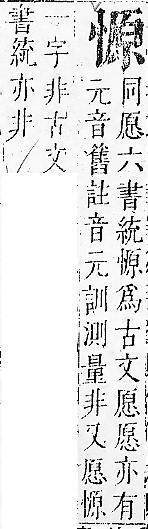 愿
同愿六書統愿為古文愿愿亦有
元音舊註音元訓測量非又愿愿
一字非古文
書統亦非